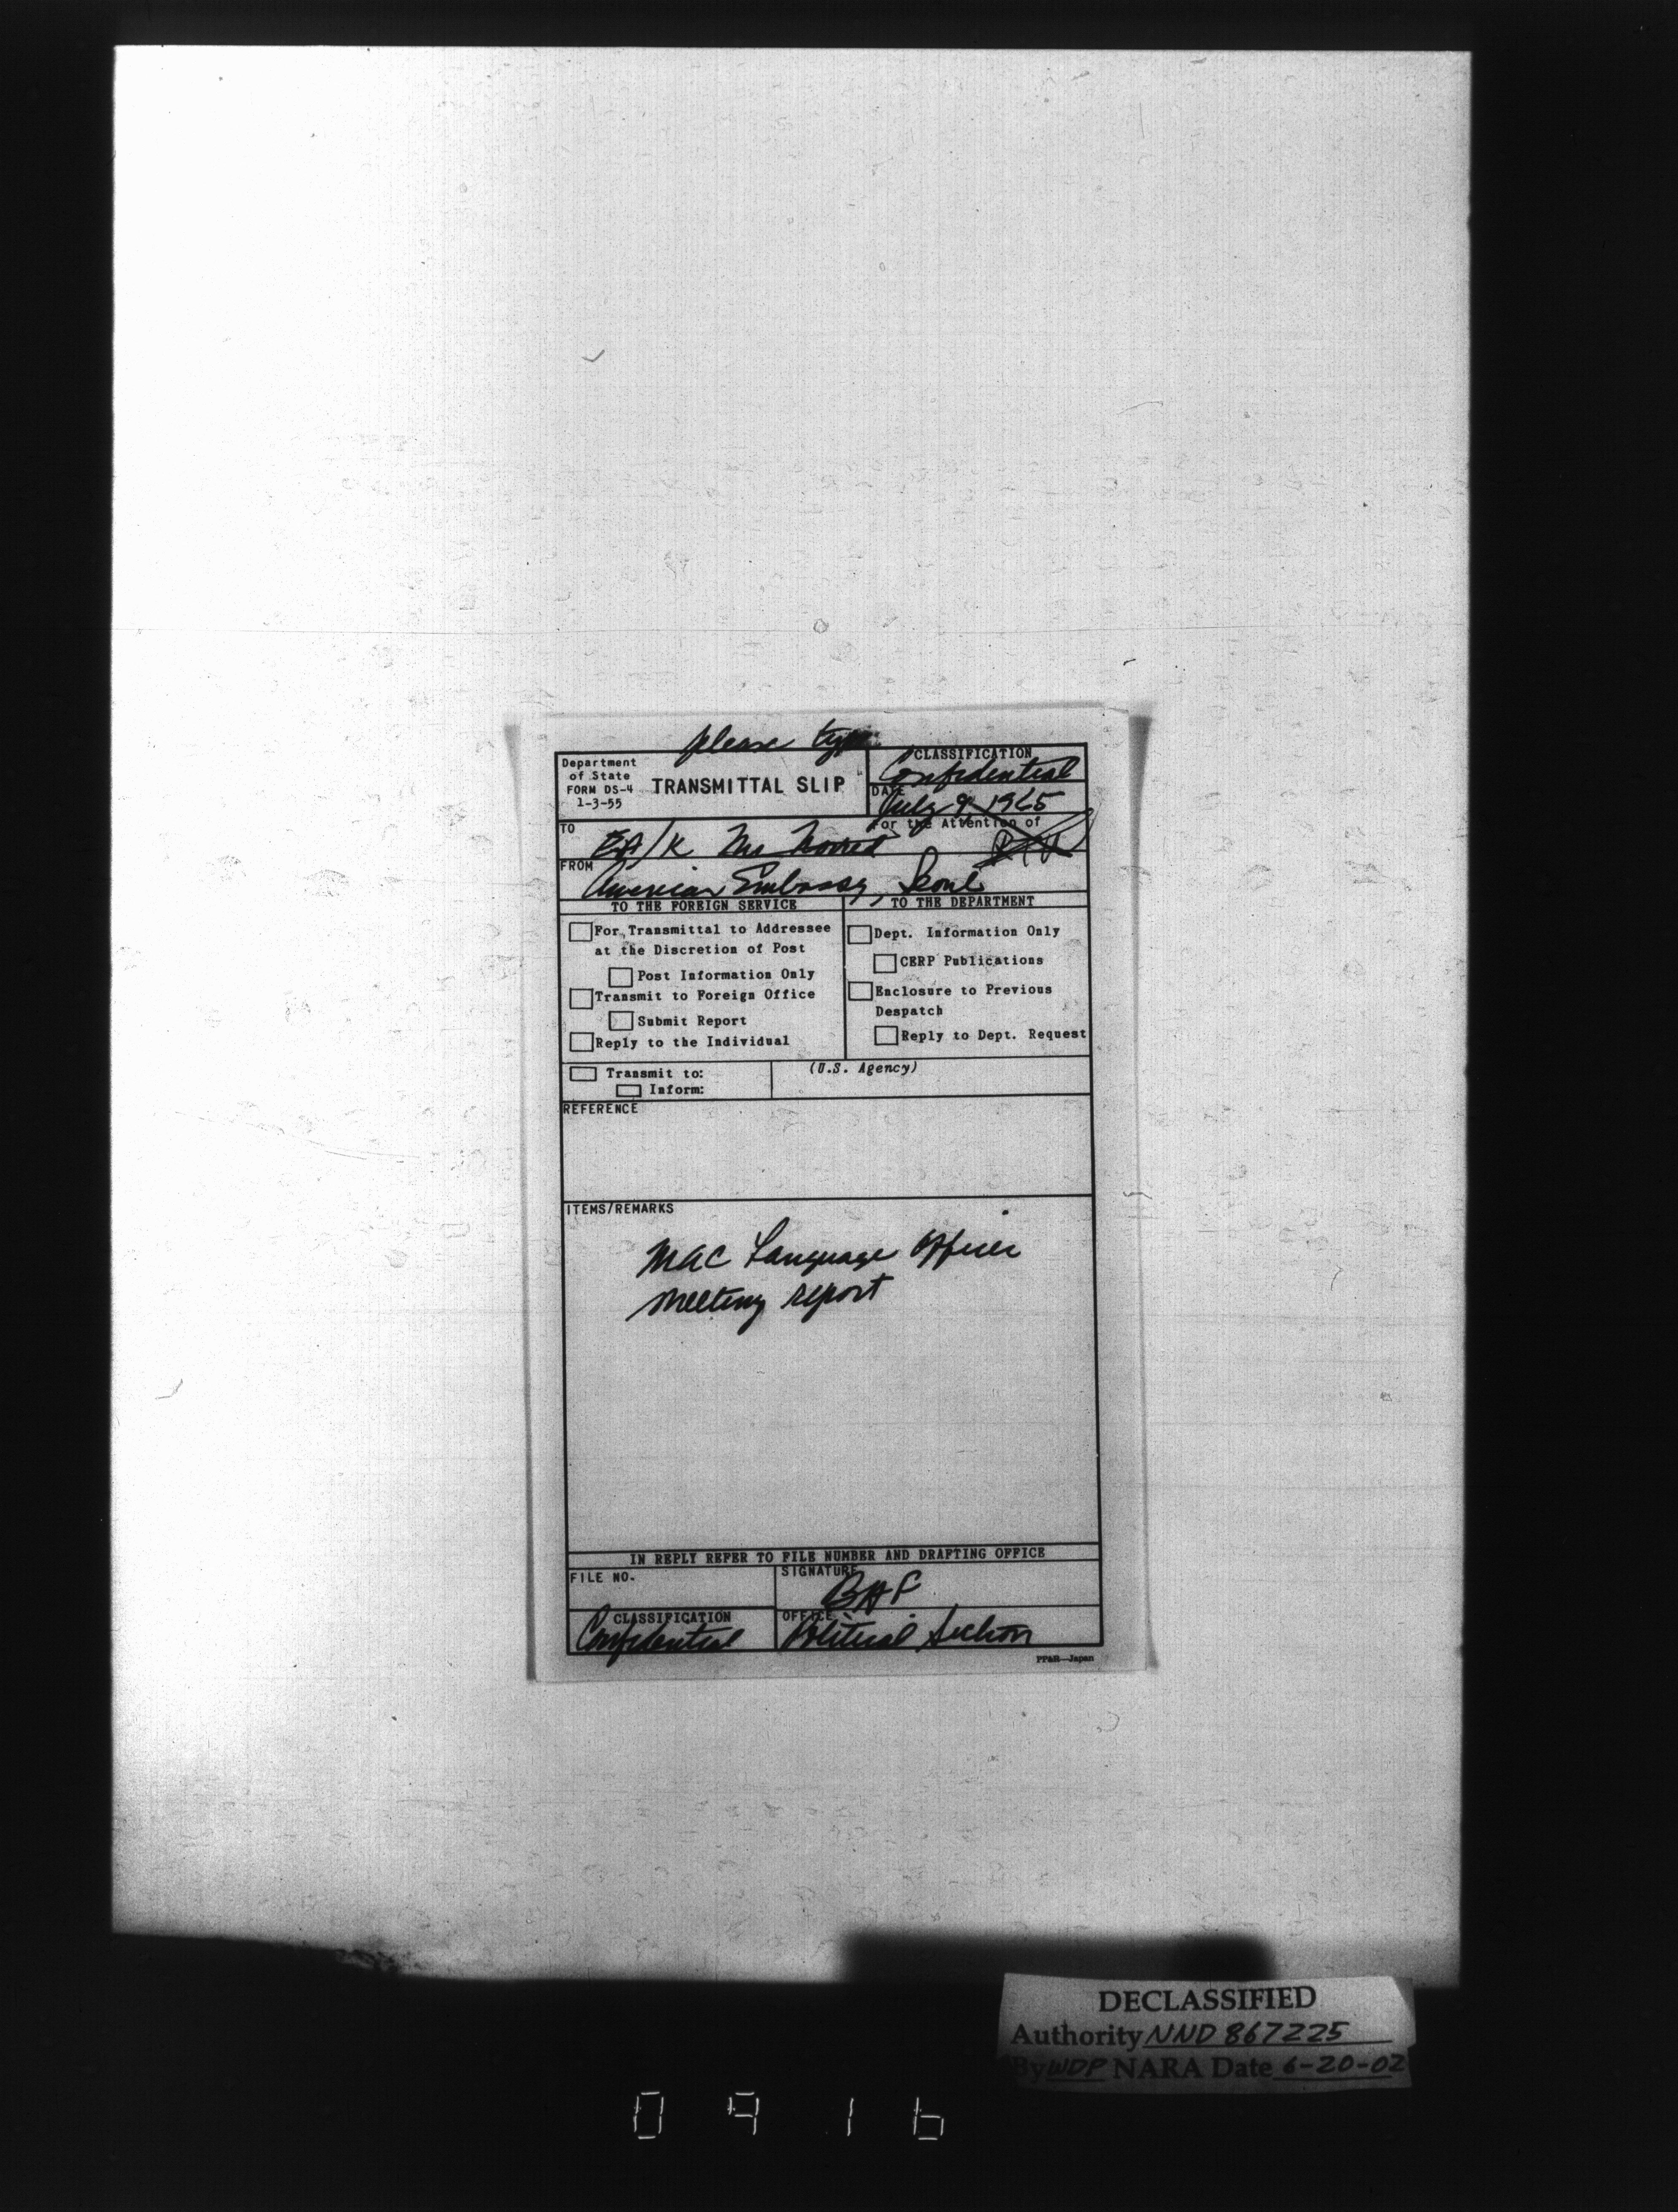 please type
Department
of State
FORM DS-4
1-3-55
TRANSMITTAL SLIP
CLASSIFICATION
Confidential
DATE
July 9, 1965
TO
EA/K Mr.
For the Attention of
FROM
American Embassy, Seoul
TO THE FOREIGN SERVICE
For Transmittal to Addressee
at the Discretion of Post
Post Information Only
Transmit to Foreign Office
Submit Report
Reply to the Individual
TO THE DEPARTMENT
Dept. Information Only
CERP Publications
Enclosure to Previous
Despatch
Reply to Dept. Request
Transmit to:
Inform:
(U.S. Agency)
REFERENCE
ITEMS/REMARKS
MAC Language Officer
meeting report
IN REPLY REFER TO FILE NUMBER AND DRAFTING OFFICE
FILE NO.
SIGNATURE
BAF
CLASSIFICATION
Confidential
OFFICE
Political Section
PP&R—Japan
DECLASSIFIED
Authority NND 867225
By WDP NARA Date 6-20-02
0916